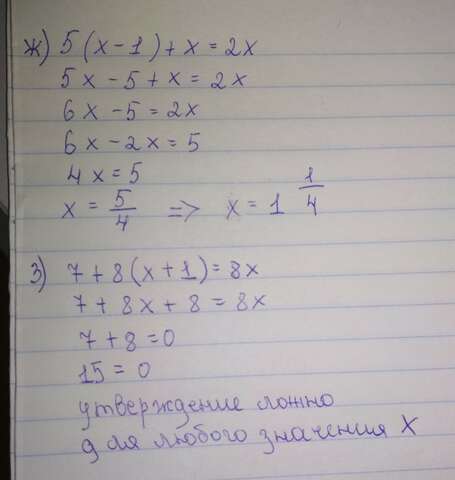 ж) 5(x-1)+x=2x
5x-5+x=2x
6x-5=2x
6x-2x=5
4x=5
x=5/4 => x=1 1/4
з) 7+8(x+1)=8x
7+8x+8=8x
7+8=0
15=0
утверждение ложно
для любого значения X